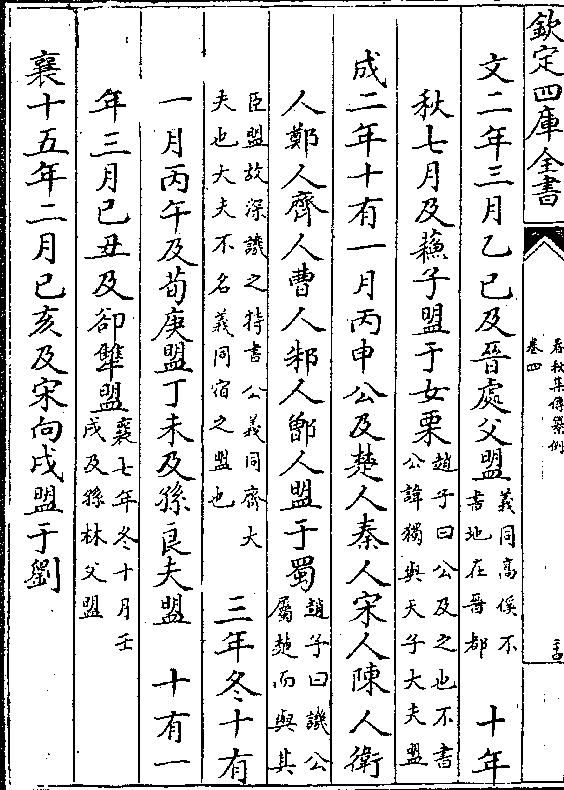 欽定四庫全書
春秋集傳纂例
卷四
文二年三月乙巳及晉處父盟義同高傒不書地在晉都 十年
秋七月及蘇子盟于女栗趙子曰公及之也不書公諱獨與天子大夫盟
成二年十有一月丙申公及楚人秦人宋人陳人衛
人鄭人齊人曹人邾人鄫人盟于蜀趙子曰譏公屬楚而與其
臣盟故深譏之特書公義同齊大夫也大夫不名義同宿之盟也 三年冬十有
一月丙午及荀庚盟丁未及孫良夫盟 十有一
年三月己丑及郤犨盟襄七年冬十月壬戌及孫林父盟
襄十五年二月已亥及宋向戌盟于劉